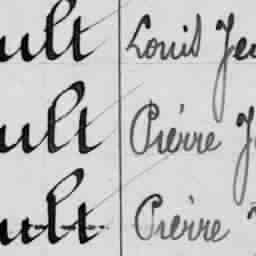 ult Louis Je
ult Pierre J
ult Pierre